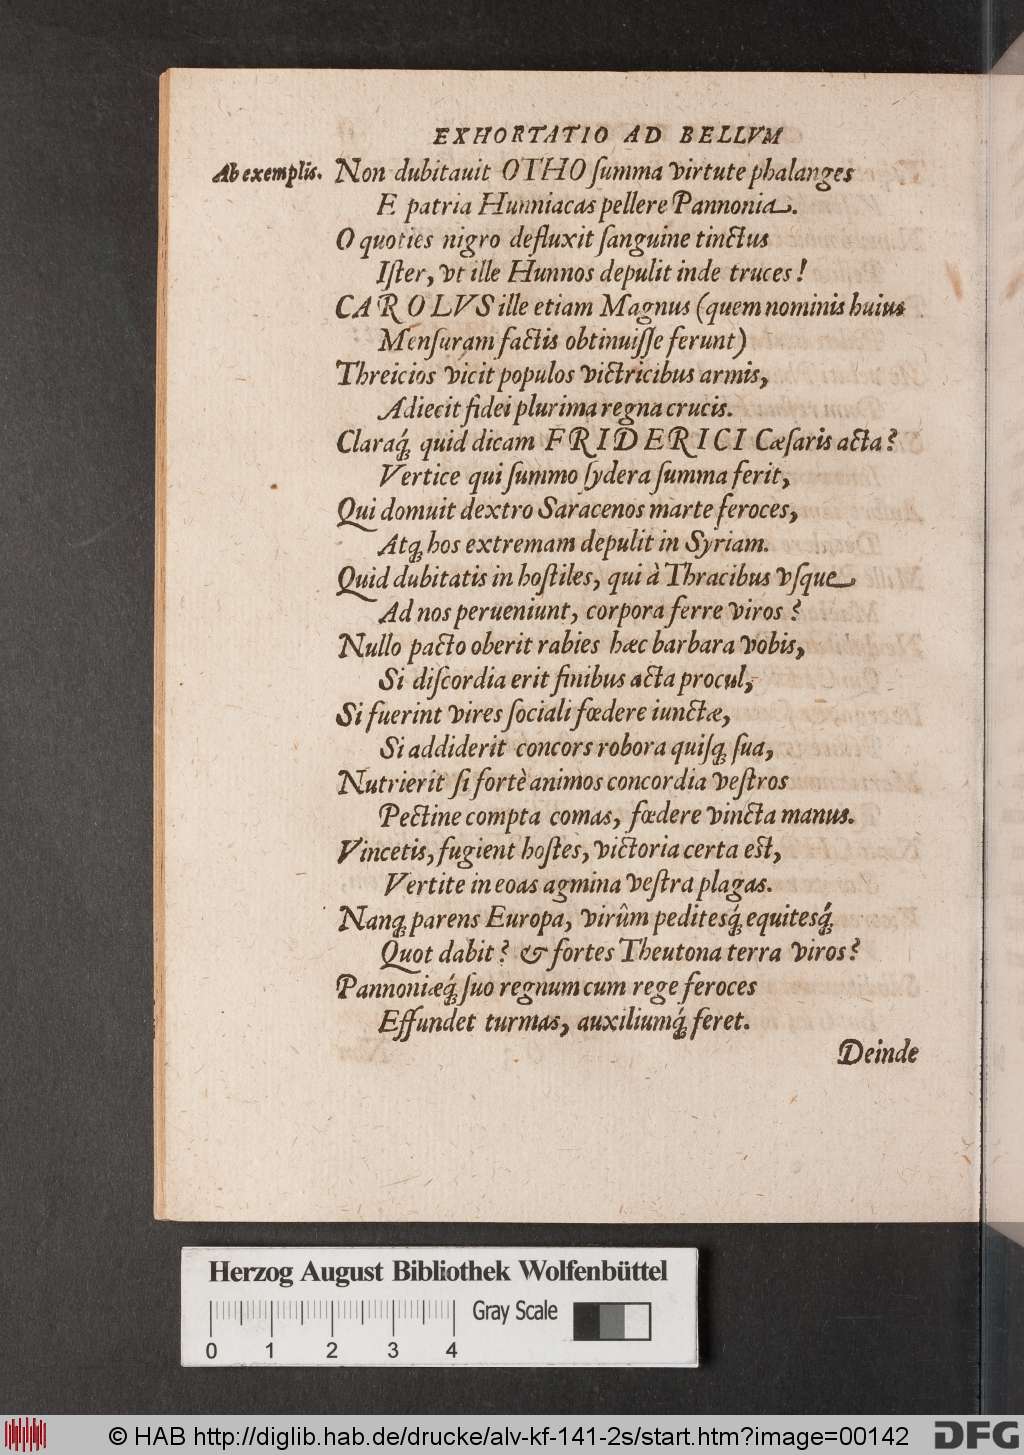 EXHORTATIO AD BELLVM
Ab exemplis. Non dubitauit OTHO ſumma virtute phalanges
E patria Hunniacas pellere Pannonia.
O quoties nigro defluxit ſanguine tinctus
Iſter, vt ille Hunnos depulit inde truces!
CAROLVS ille etiam Magnus (quem nominis huius
Menſuram factis obtinuiſſe ferunt)
Threicios vicit populos victricibus armis,
Adiecit fidei plurima regna crucis.
Claraq́; quid dicam FRIDERICI Cæſaris acta?
Vertice qui ſummo ſydera ſumma ferit,
Qui domuit dextro Saracenos marte feroces,
Atq; hos extremam depulit in Syriam.
Quid dubitatis in hoſtiles, qui à Thracibus vſque
Ad nos perueniunt, corpora ferre viros?
Nullo pacto oberit rabies hæc barbara vobis,
Si diſcordia erit finibus acta procul,
Si fuerint vires ſociali fœdere iunctæ,
Si addiderit concors robora quiſq; ſua,
Nutrierit ſi fortè animos concordia veſtros
Pectine compta comas, fœdere vincta manus.
Vincetis, fugient hoſtes, victoria certa eſt,
Vertite in eoas agmina veſtra plagas.
Nanq; parens Europa, virûm peditesq́; equitesq́;
Quot dabit? & fortes Theutona terra viros?
Pannoniæq́; ſuo regnum cum rege feroces
Effundet turmas, auxiliumq́; feret.
Deinde
Herzog August Bibliothek Wolfenbüttel
Gray Scale
0 1 2 3 4
© HAB http://diglib.hab.de/drucke/alv-kf-141-2s/start.htm?image=00142
DFG